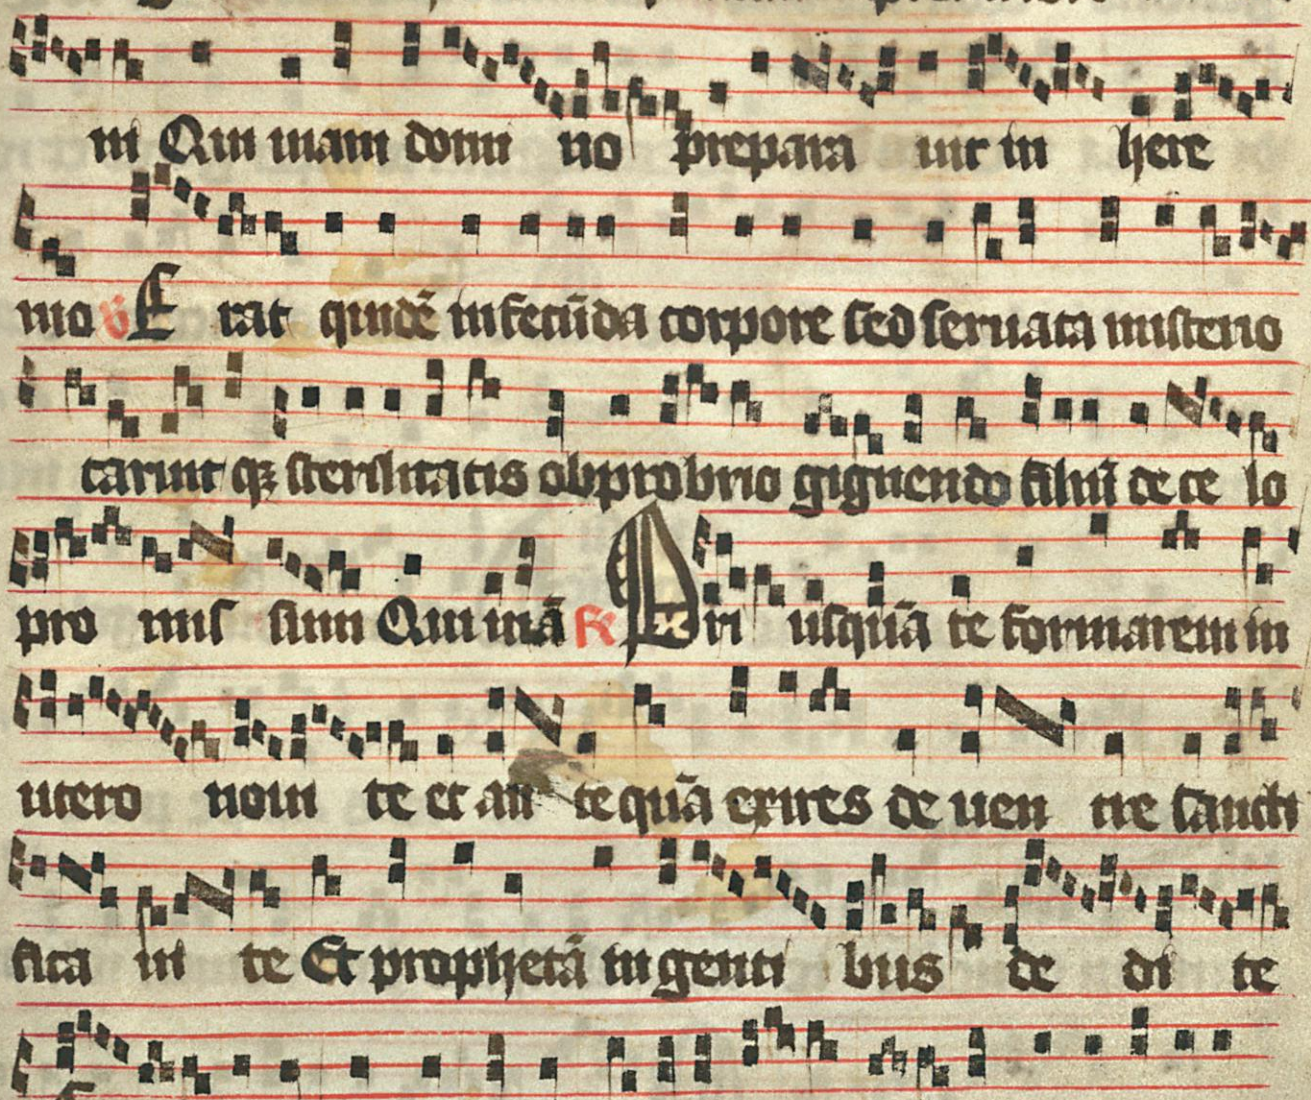 ni Qui uiam domi no prepara uit in here
mo ℣ E rat quidē infecūda corpore sed seruata misterio
caruit qꝫ sterilitatis obprobrio gignendo filiū de ce lo
pro mis sum Qui uiā ℟ Pri usquā te formarem in
utero noui te et an tequā exires de uen tre sancti
fica ui te Et prophetā in genti bus de di te